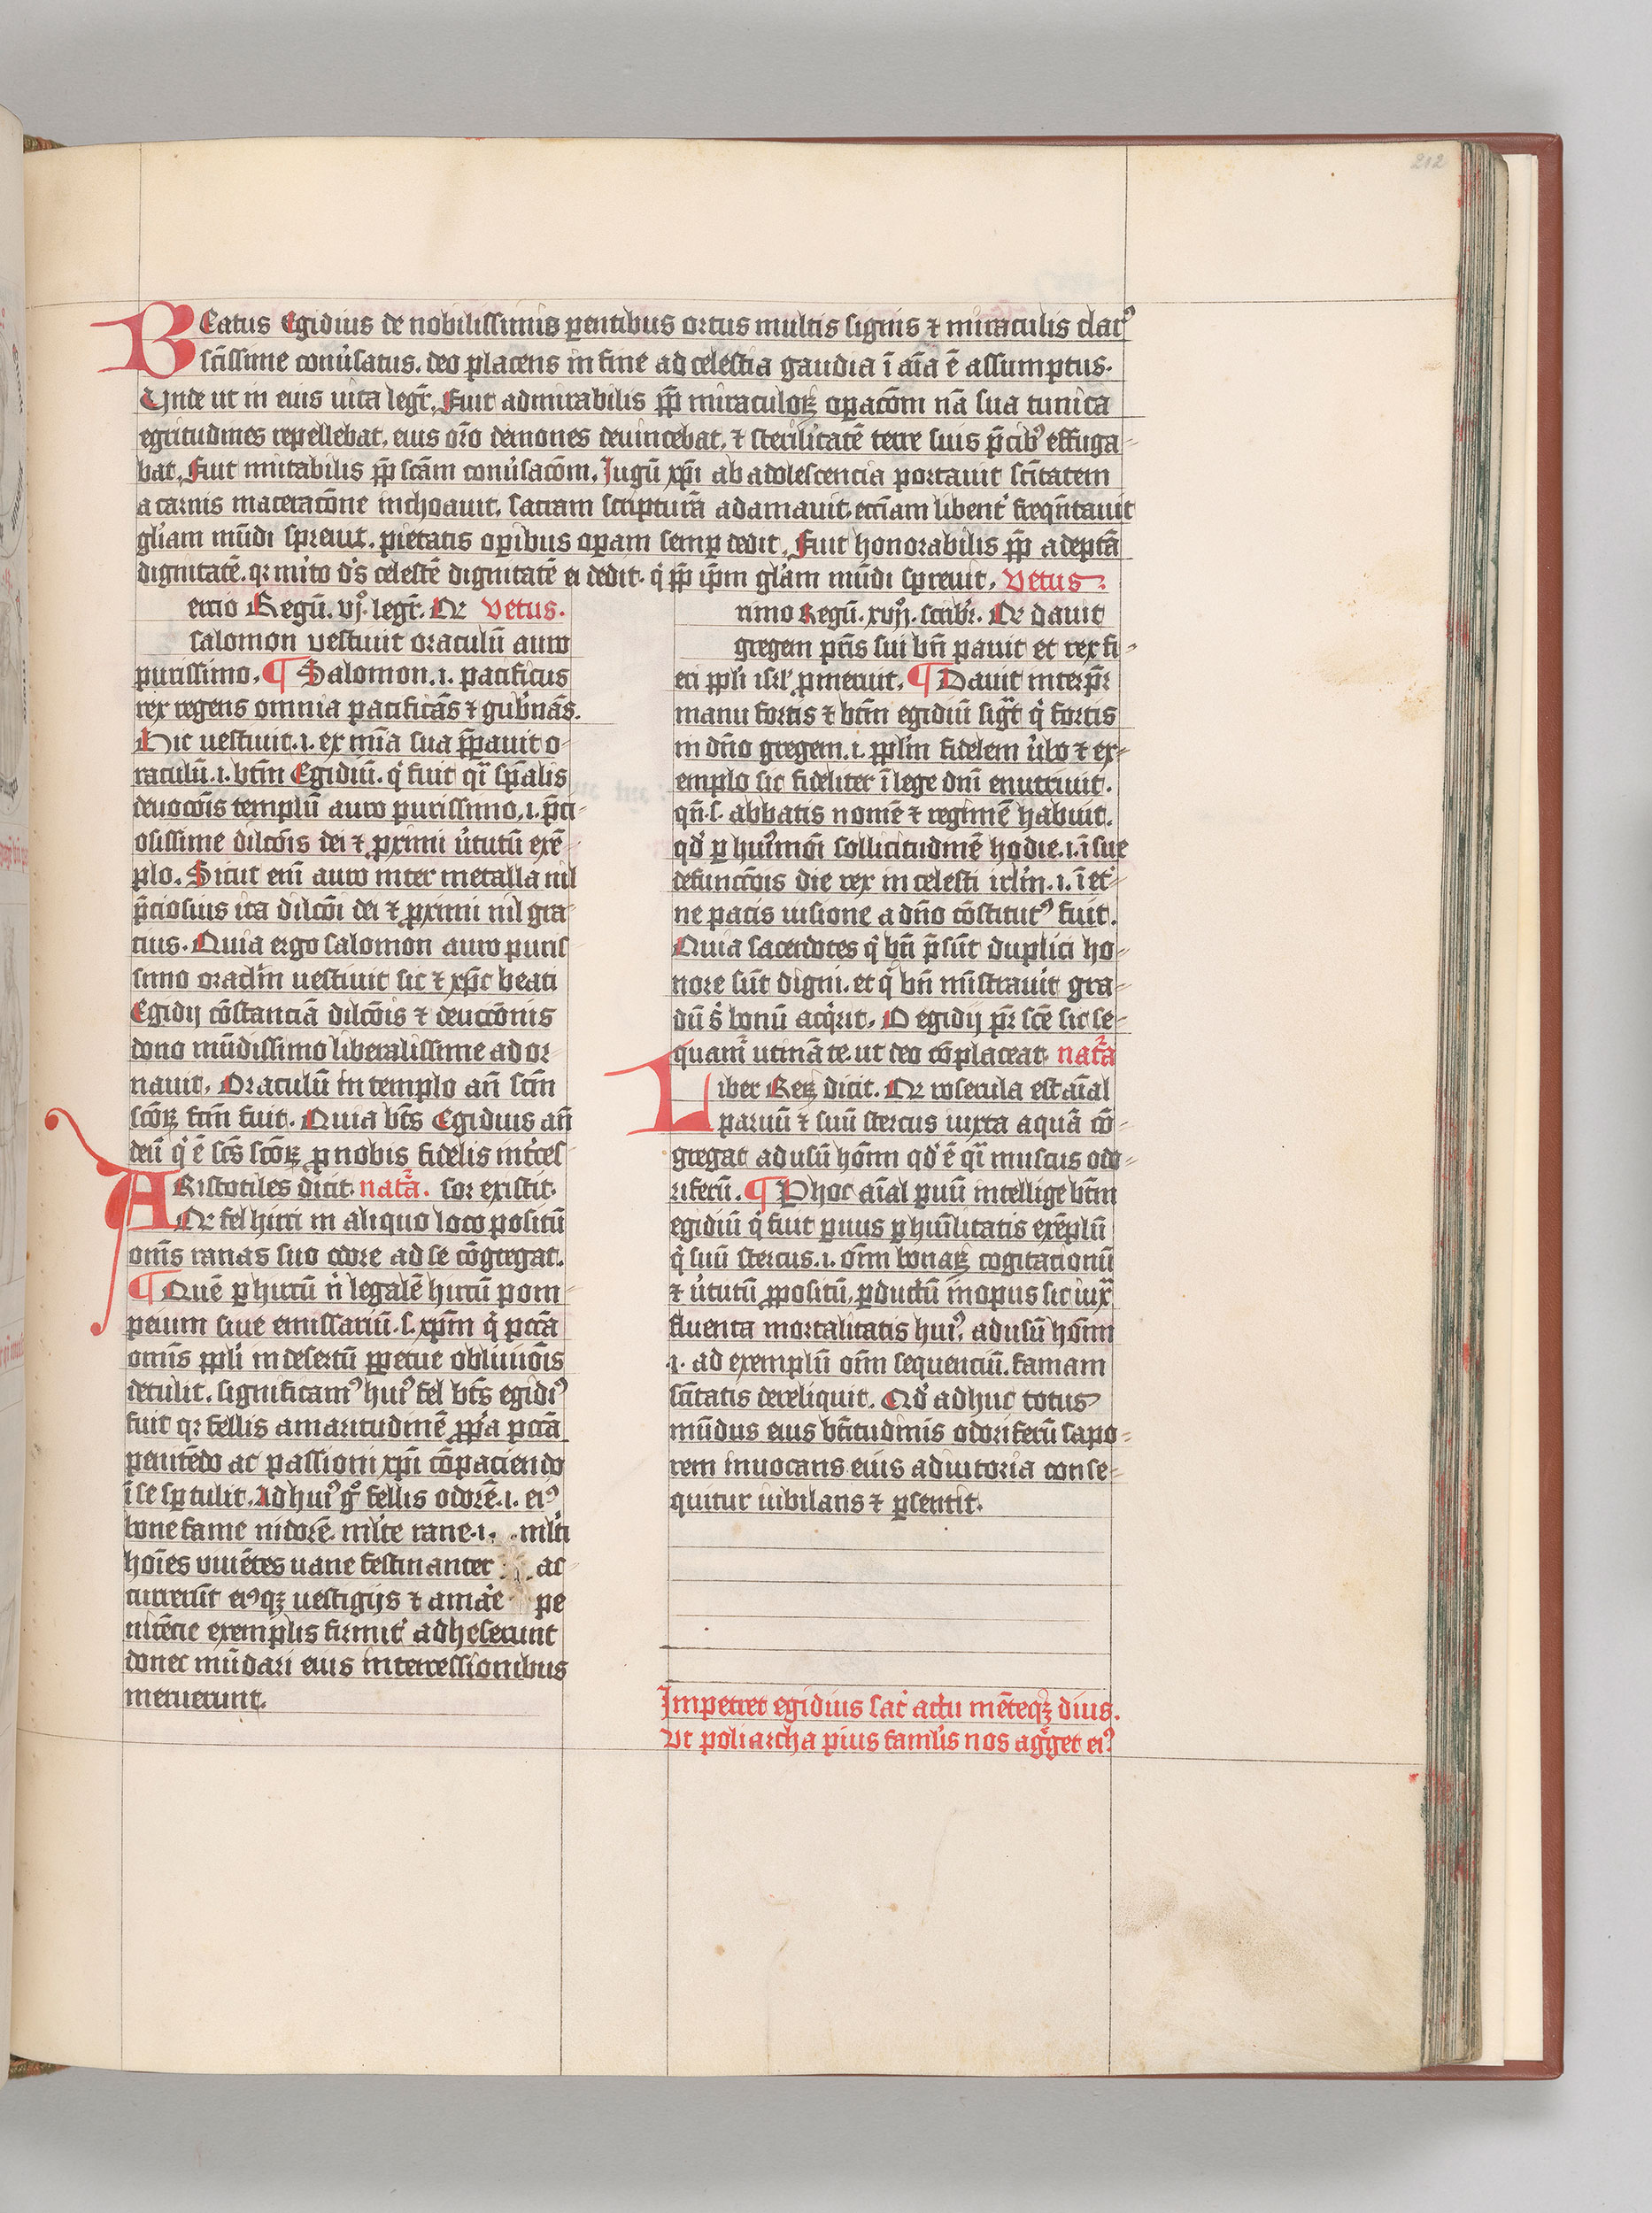 212
BEatus Egidius de nobilissimis parentibus ortus multis signis ⁊ miraculis clarꝰ
sc̄issime conūsatus. deo placens in fine ad celestia gaudia ī aīa ē assumptus.
Unde ut in eius uita legr̄. Fuit admirabilis ꝓp̄ miraculoꝝ oꝑacōm nā sua tunica
egritudines repellebat. eius or̄o demones deuincebat. ⁊ sterilitatē terre suis p̄cibꝰ effuga-
bat. Fuit mitabilis ꝓp̄ scām conūsacōm. Jugū xp̄i ab adolescencia portauit sc̄itatem
a carnis maceracōne inchoauit. sacram scripturā adamauit. eccīam libent᷑ freqn̄tauit
gl̄iam mūdi spreuit. pietatis oꝑibus oꝑam semꝑ dedit. Fuit honorabilis ꝓp̄ adeptā
dignitatē. qꝛ mīto d̄s celestē dignitatē ei dedit. q̇ ꝓp̄ ip̄m gl̄am mūdi spreuit. vetus.
ercio Regū. vj. legr̄. Qꝛ vetus.
salomon vestiuit oraculū auro
purissimo. ¶ Salomon .i. pacificus
rex regens omnia pacificās ⁊ gub̄nās.
Hic uestiuit .i. ex mīa sua p̄ꝑauit o-
raculū .i. btm̄ Egidiū. q̇ fuit qͣi sp̄alis
deuocōis templū auro purissimo .i. p̄ci-
osissime dilcōis dei ⁊ ꝓximi ūtutū exē
plo. Sicut eni͂ auro inter metalla nil
p̄ciosius ita dilcōi dei ⁊ ꝓximi nil gra-
cius. Quia ergo salomon auro puris
simo oraclm̄ uestiuit sic ⁊ xp̄c beati
Egidij cōstanciā dilcōis ⁊ deuocōnis
dono mūdissimo liberalissime ador-
nauit. Oraculū in templo an̄ scm̄
scōꝝ fcm̄ fuit. Quia bt̄s Egidius an̄
deū q̇ ē sc̄s scōꝝ ꝓ nobis fidelis int̄ces-
ARistotiles dicit. nat̄a. sor existit.
Qꝛ fel hirci in aliquo loco positū
om̄s ranas suo odore ad se cōgregat.
¶ Quē ꝑ hircū n̄ legalē hircū pom-
peium siue emissariū .s. xp̄m q̇ pcc̄a
omīs ppl̄i in desertū ꝑpetue obliuiōis
detulit. significamꝰ huiꝰ fel bt̄s egidiꝰ
fuit qꝛ fellis amaritudinē ꝓp̄a pcc̄a
penitēdo ac passioni xp̄i cōpaciendo
ī se sꝑ tulit. Ad huiꝰ gͦ fellis odorē .i. eiꝰ
bone fame nidorē ml̄te rane .i. ml̄ti
hoīes viuētes uane festinanter ac-
currerūt eiꝰqꝫ uestigijs ⁊ amāe pe
nitēcie exemplis firmit᷑ adheserunt
donec mūdari eius intercessionibus
meruerunt.
rimo Regū. xvij. scribr̄. Qꝛ dauit
gregem pr̄is sui bn̄ pauit et rex fi-
eri ppl̄i isrl̄ ꝓmeruit. ¶ Dauit interp̄r
manu fortis ⁊ btm̄ egidiū sigͣt q̇ fortis
in dn̄o gregem .i. ppl̄m fidelem ūbo ⁊ ex-
emplo sic fideliter ī lege dnī enutriuit.
qn̄ .s. abbatis nomē ⁊ regimē habuit.
qd̓ ꝑ huiꝰmōi sollicitudinē hodie .i. ī sue
defunccōis die rex in celesti irl̄m .i. ī et̄-
ne pacis uisione a dn̄o cōstitutꝰ fuit.
Quia sacerdotes q̇ bn̄ p̄sūt duplici ho-
nore sūt digni. et q̇ bn̄ mīstrauit gra-
dū s᷑ bonū acq̇rit. O egidij pr̄ sc̄e sic se-
quamr̄ utinā te. ut deo cōplaceat. nat̄a
Liber Reꝝ dicit. Qꝛ rosecula est aīal
paruū ⁊ suū stercus iuxta aquā cō-
gregat ad usū hōīm qd̓ ē qͣi muscus odo-
riferū. ¶ Ꝑ hoc aīal ꝑuū intellige btm̄
egidiū q̇ fuit ꝑuus ꝑ huīlitatis exēplū
q̇ suū stercus .i. om̄ bonaꝝ cogitacionū
⁊ ūtutū ꝓpositū. ꝑductū in opus sic iux͛
fluenta mortalitatis huiꝰ. ad usū hōīm
.i. ad exemplū om̄ sequenciū. famam
sc̄itatis dereliquit. Qd̓ adhuc totus
mūdus eius bt̄itudinis odoriferū sapo-
rem inuocans eius adiutoria conse-
quitur iubilans ⁊ ꝑsentit.
Impetret egidius sac̄ actu mēteqꝫ dius.
Vt poliarcha pius faml̄is nos agg̓get eiꝰ